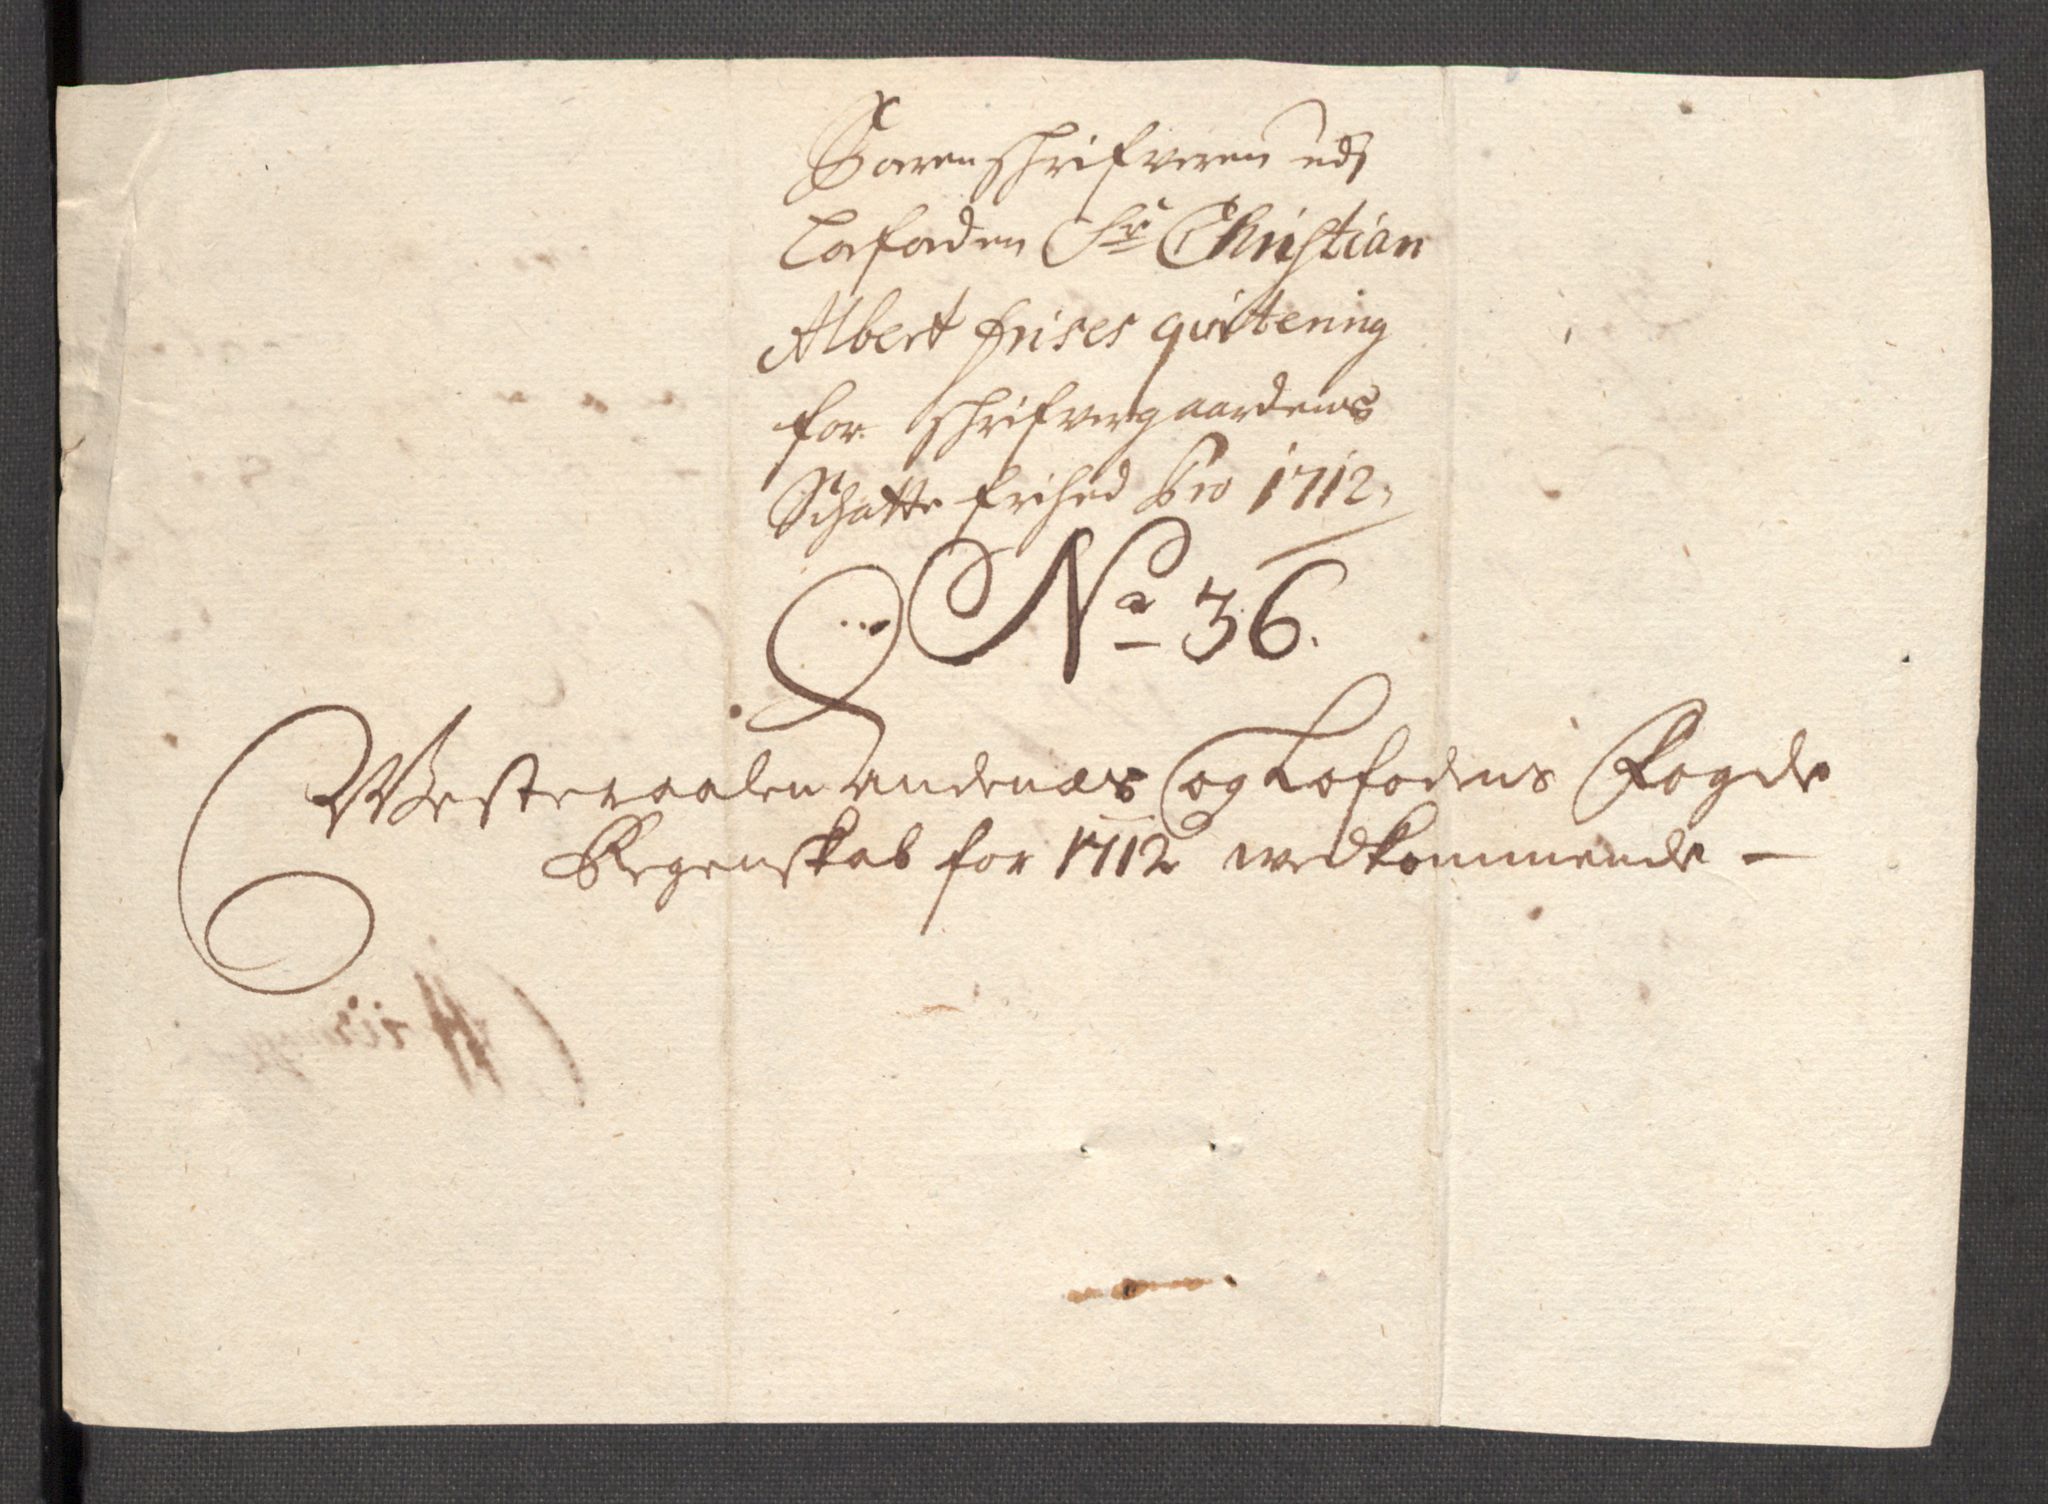 Sorenschrifveren udj
Lofoden Sr Christian
Albert frises qvitering
for schrifvergaardens
Schatte frihed Pro 1712,
No 36.
Westeraalen Andenæs og Lofodens Fogde
Regenskab for 1712 vedkommende –